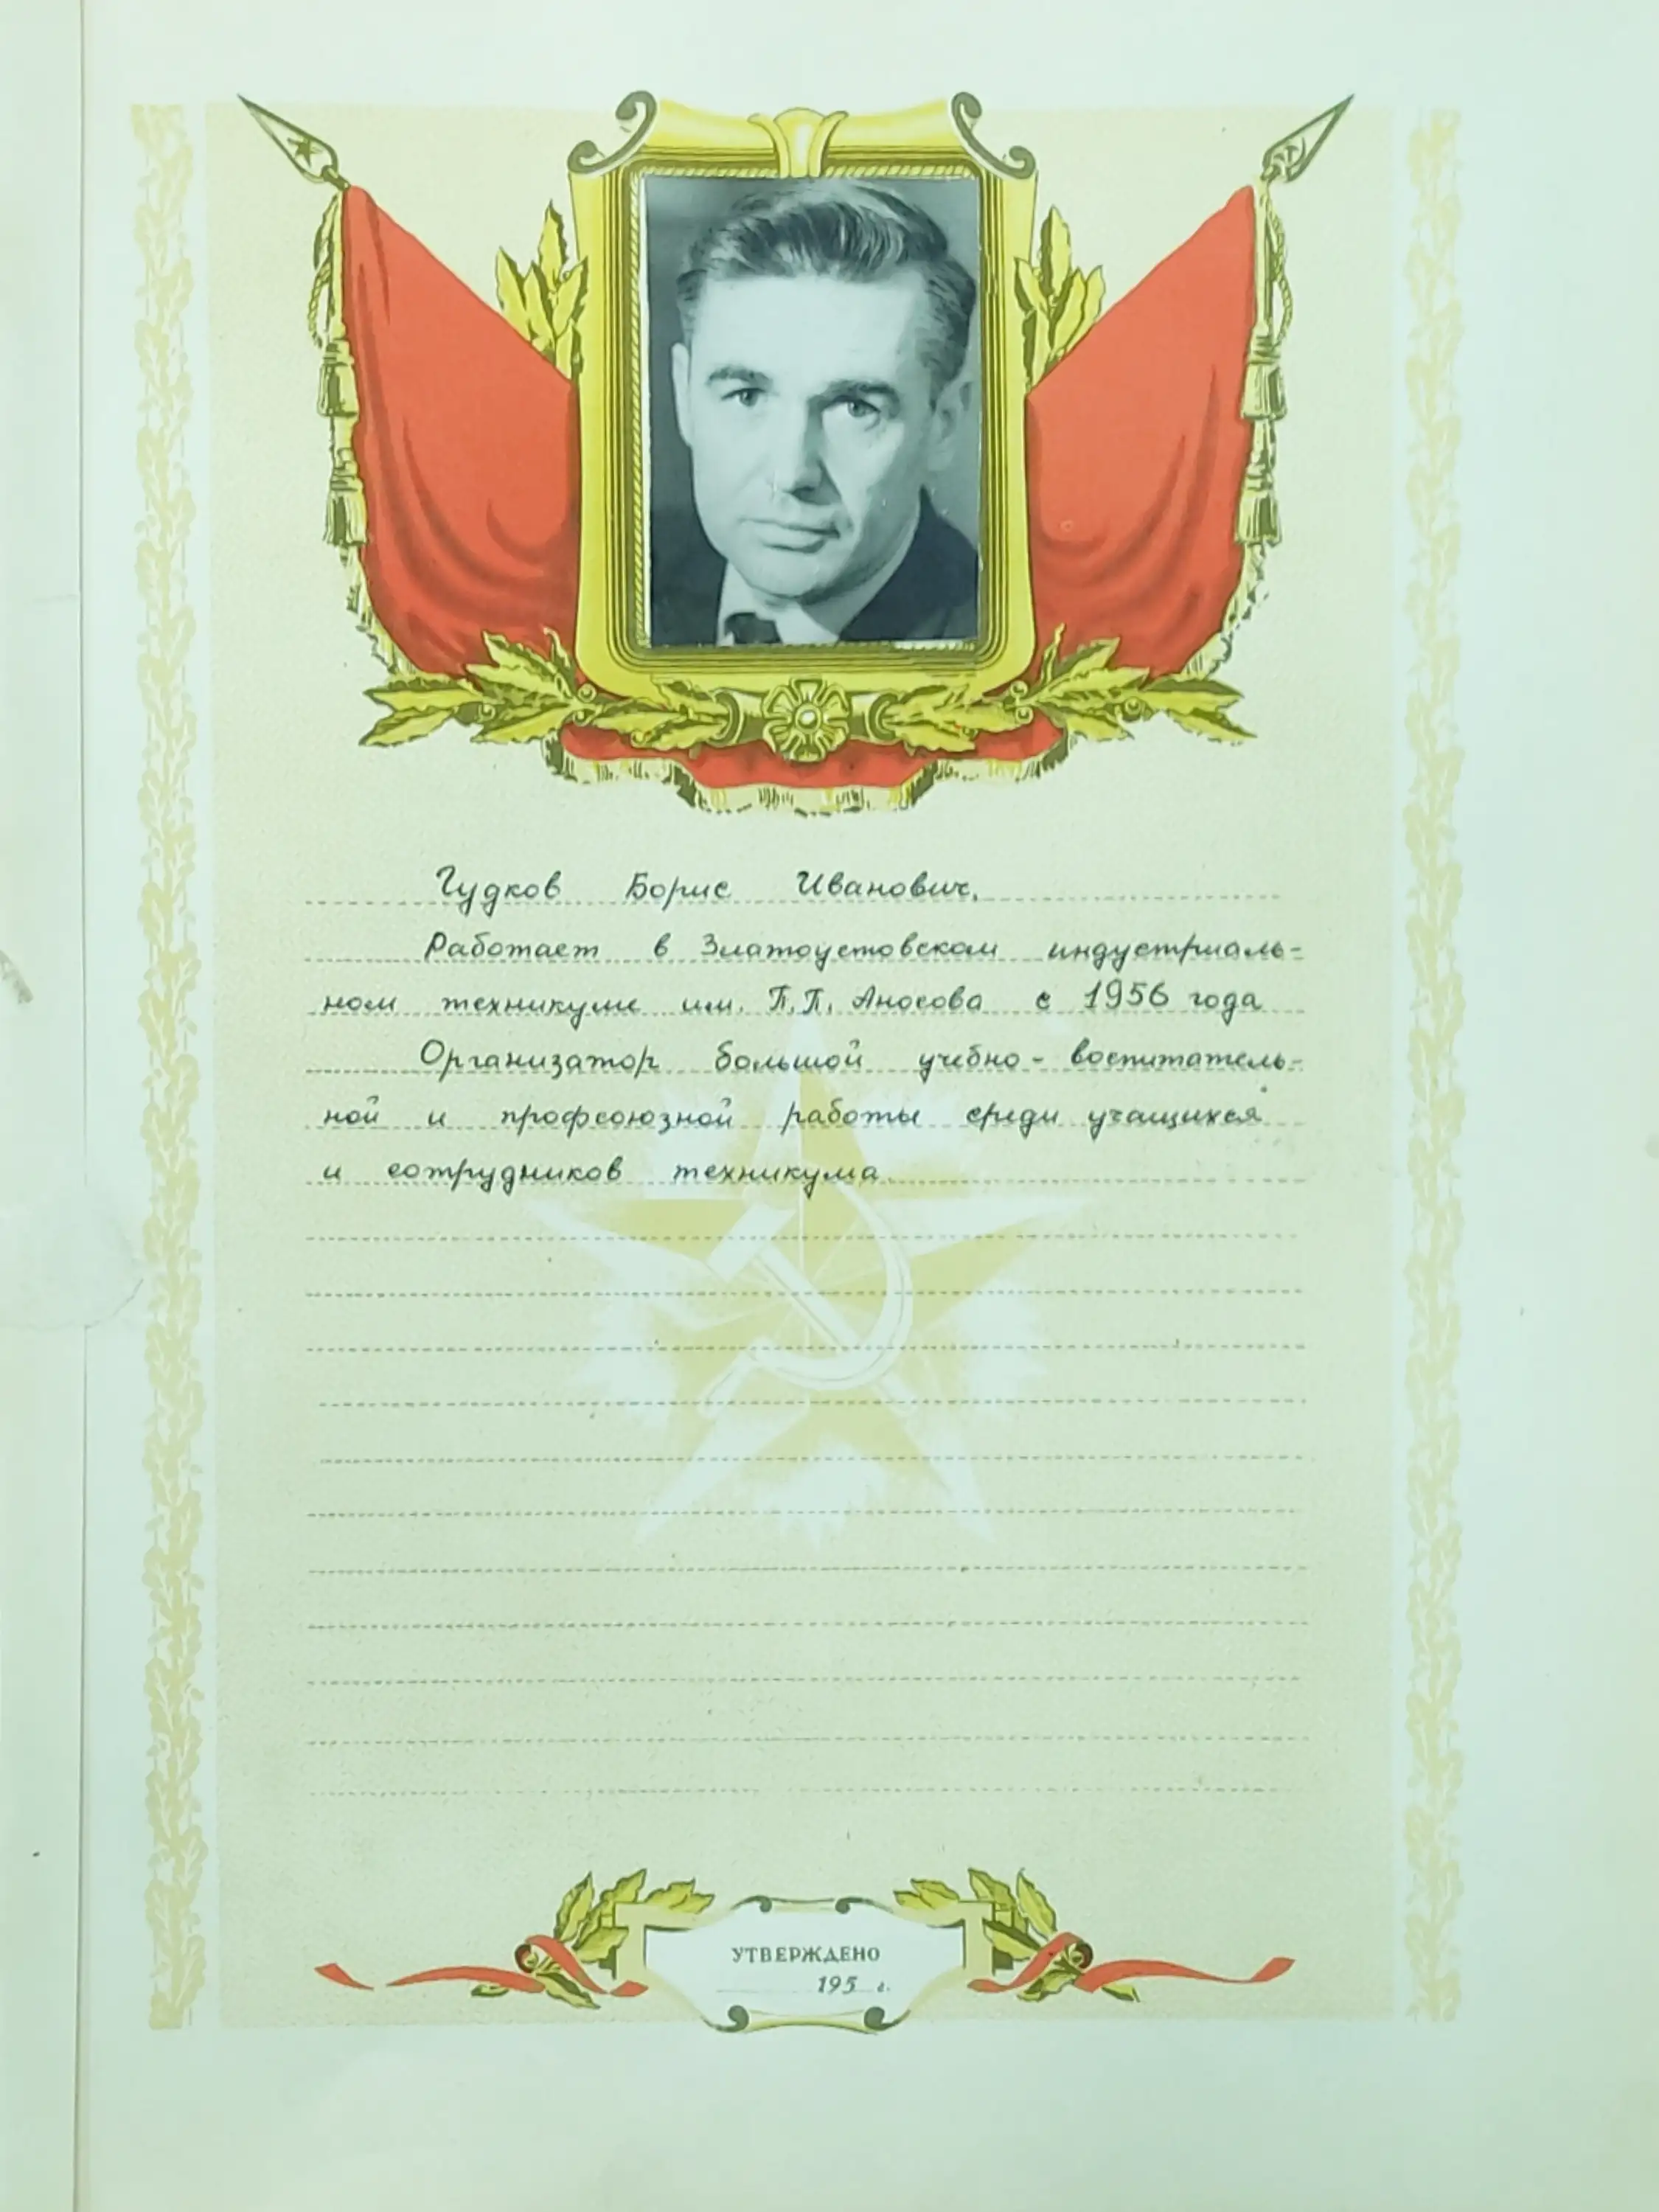 Гудков Борис Иванович.
Работает в Златоустовском индустриаль-
ном техникуме им. П.П. Аносова с 1956 года
Организатор большой учебно-воспитатель-
ной и профсоюзной работы среди учащихся
и сотрудников техникума.
УТВЕРЖДЕНО
195 г.